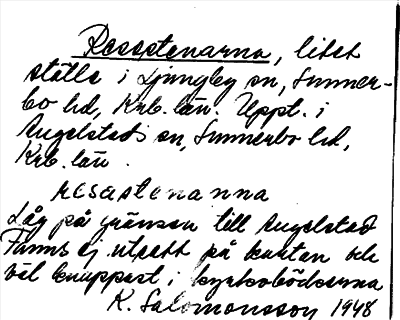 Resestenarna, litet
ställe i Ljungby sn, Sunner-
bo hd, Krb. län. Uppt. i
Angelstads sn, Sunnerbo hd,
Krb. län.
resestenanna
Låg på gränsen till Angelstad
Finns ej utsatt på kartan och
väl knappast i kyrkoböckerna
K. Salomonsson 1948